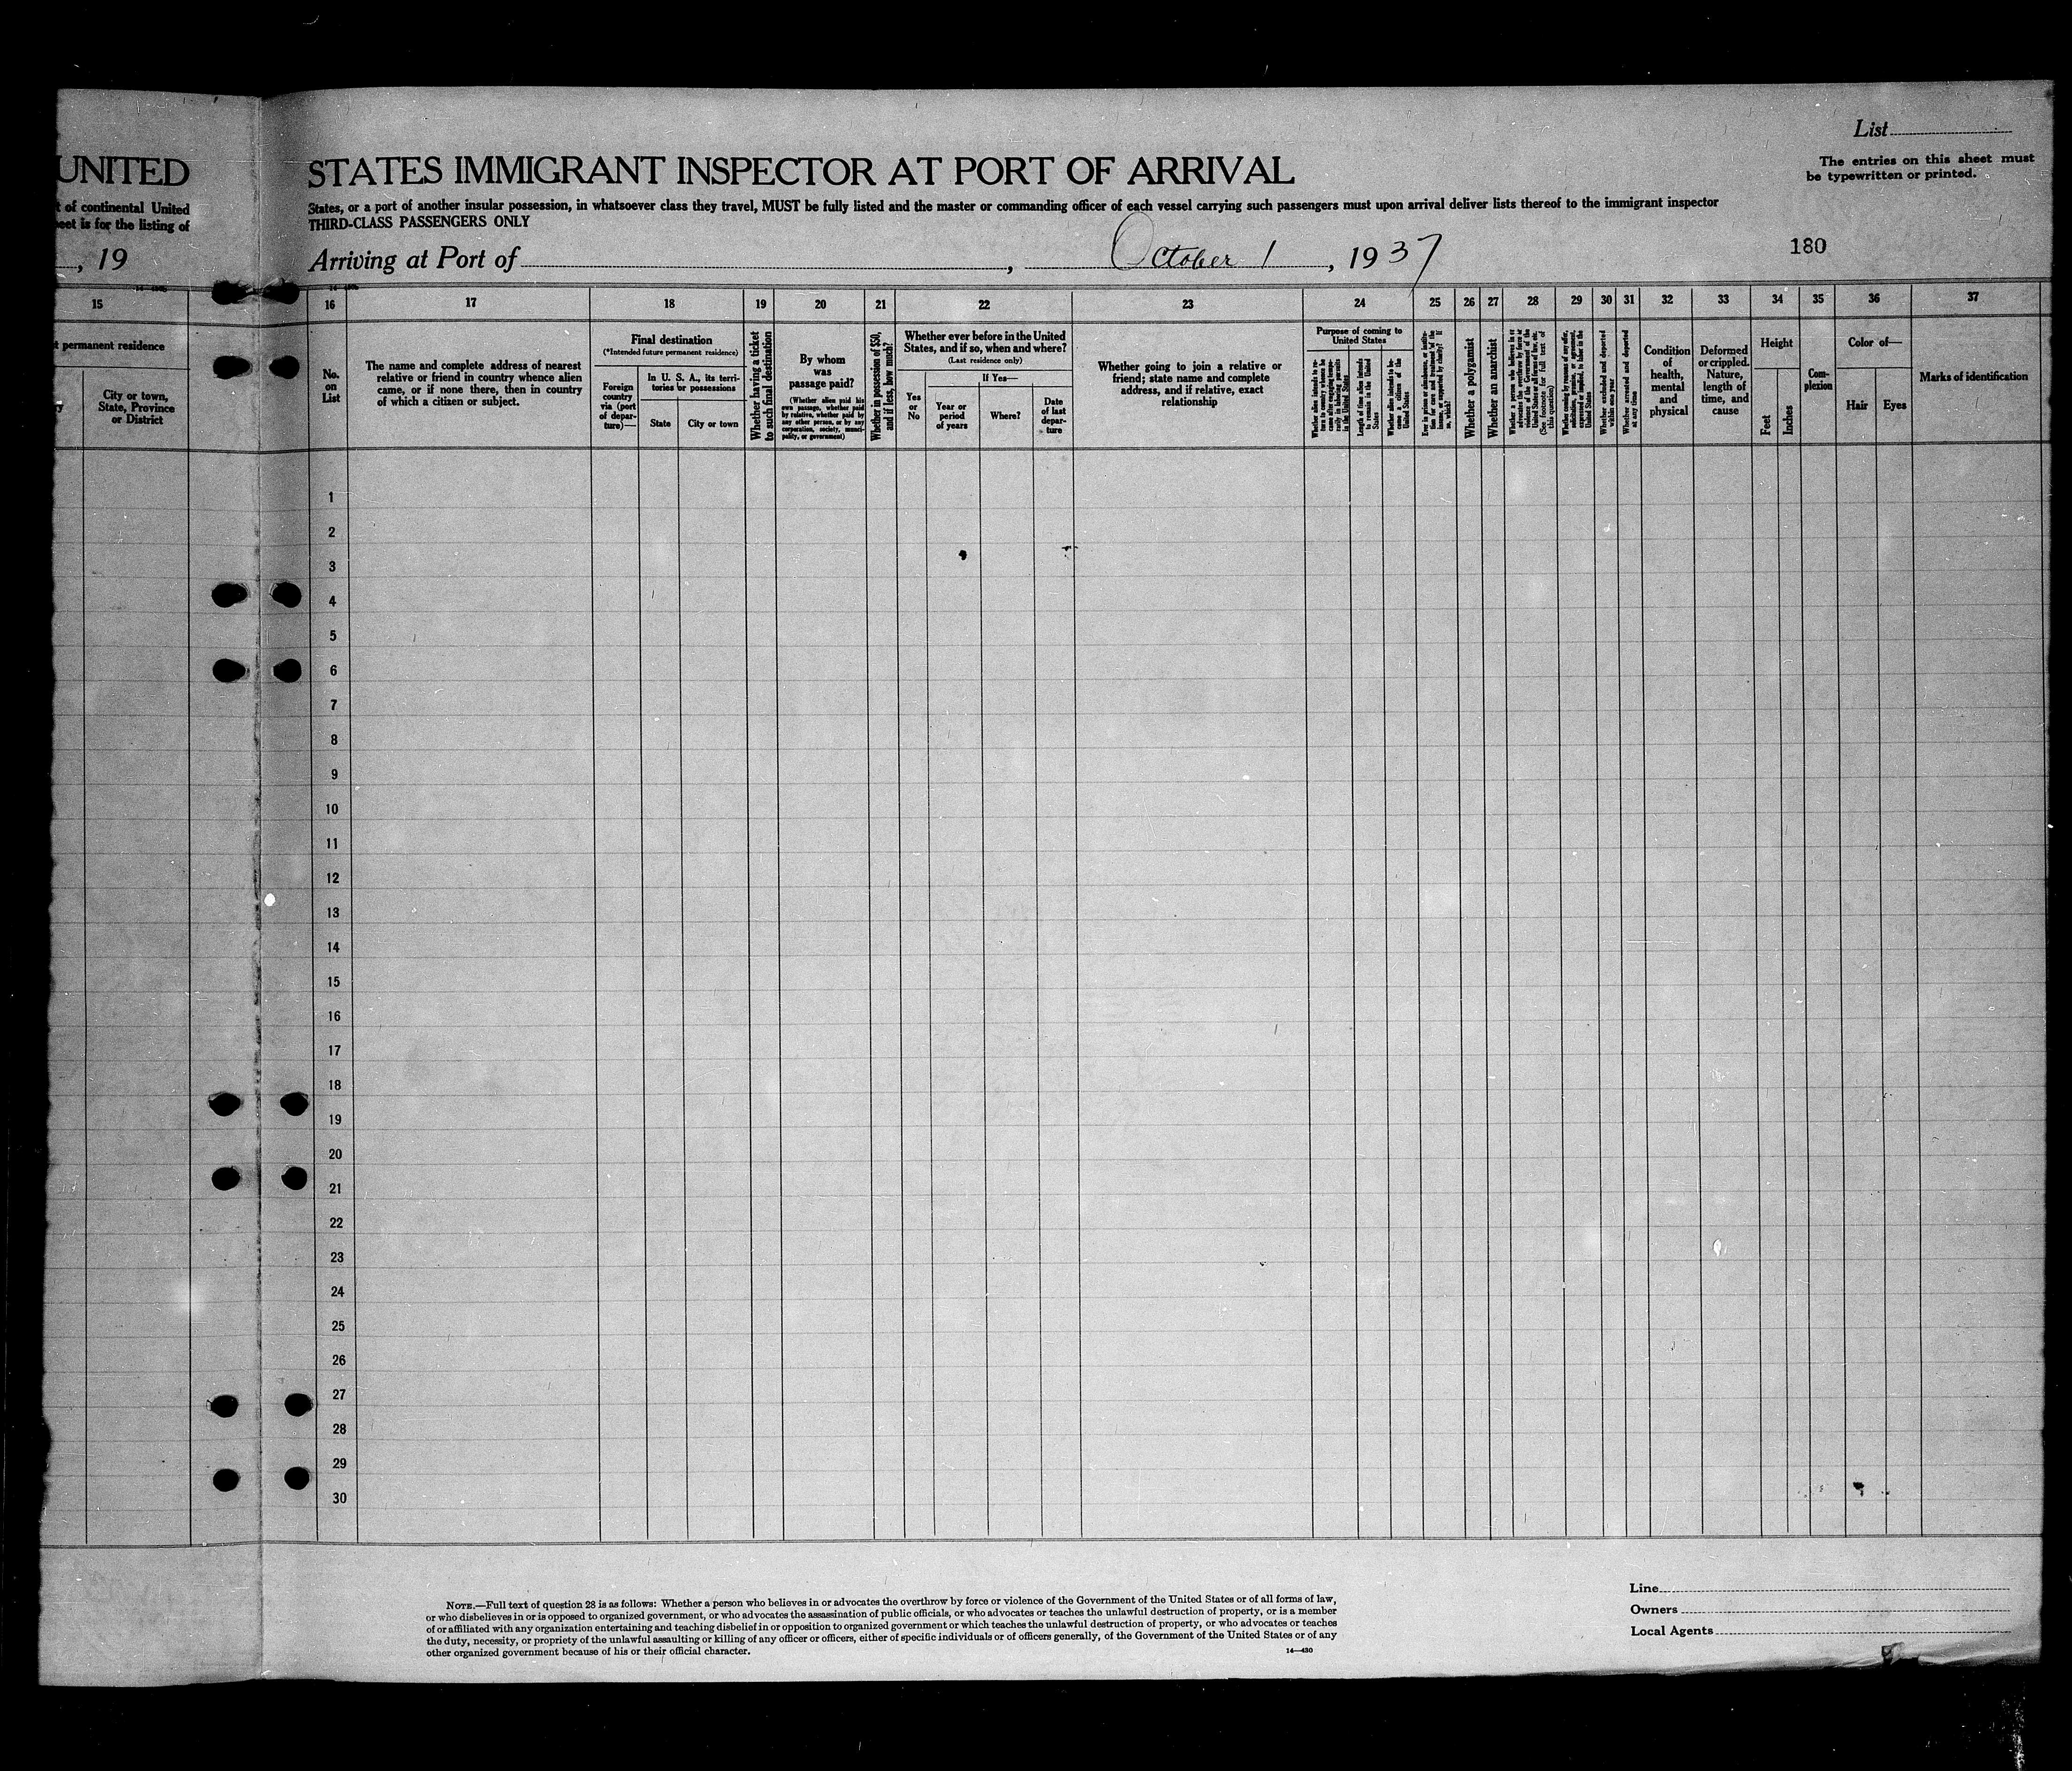 List
The entries on this sheet must
be typewritten or printed.
UNITED STATES IMMIGRANT INSPECTOR AT PORT OF ARRIVAL
t of continental United States, or a port of another insular possession, in whatsoever class they travel, MUST be fully listed and the master or commanding officer of each vessel carrying such passengers must upon arrival deliver lists thereof to the immigrant inspector
eet is for the listing of THIRD-CLASS PASSENGERS ONLY
, 19
Arriving at Port of , October 1, 1937
180
15
t permanent residence
y
City or town,
State, Province
or District
16
No.
on
List
17
The name and complete address of nearest
relative or friend in country whence alien
came, or if none there, then in country
of which a citizen or subject.
18
Final destination
(*Intended future permanent residence)
Foreign
country
via (port
of depar-
ture)—
In U. S. A., its terri-
tories or possessions
State
City or town
19
Whether having a ticket
to such final destination
20
By whom
was
passage paid?
(Whether alien paid his
own passage, whether paid
by relative, whether paid by
any other person, or by any
corporation, society, munici-
pality, or government)
21
Whether in possession of $50,
and if less, how much?
22
Whether ever before in the United
States, and if so, when and where?
(Last residence only)
Yes
or
No
If Yes—
Year or
period
of years
Where?
Date
of last
depar-
ture
23
Whether going to join a relative or
friend; state name and complete
address, and if relative, exact
relationship
24
Purpose of coming to
United States
Whether alien intends to re-
turn to country whence he
came after engaging tempo-
rarily in laboring pursuits
in the United States
Length of time alien intends
to remain in the United
States
Whether alien intends to be-
come a citizen of the
United States
25
Ever in prison or almshouse, or institu-
tion for care and treatment of the
insane, or supported by charity? If
so, which?
26
Whether a polygamist
27
Whether an anarchist
28
Whether a person who believes in or
advocates the overthrow by force or
violence of the Government of the
United States or all forms of law, etc.
(See footnote for full text of
this question)
29
Whether coming by reason of any offer,
solicitation, promise, or agreement,
expressed or implied, to labor in the
United States
30
Whether excluded and deported
within one year
31
Whether arrested and deported
at any time
32
Condition
of
health,
mental
and
physical
33
Deformed
or crippled.
Nature,
length of
time, and
cause
34
Height
Feet
Inches
35
Com-
plexion
36
Color of—
Hair
Eyes
37
Marks of identification
1
2
3
4
5
6
7
8
9
10
11
12
13
14
15
16
17
18
19
20
21
22
23
24
25
26
27
28
29
30
NOTE.—Full text of question 28 is as follows: Whether a person who believes in or advocates the overthrow by force or violence of the Government of the United States or of all forms of law,
or who disbelieves in or is opposed to organized government, or who advocates the assassination of public officials, or who advocates or teaches the unlawful destruction of property, or is a member
of or affiliated with any organization entertaining and teaching disbelief in or opposition to organized government or which teaches the unlawful destruction of property, or who advocates or teaches
the duty, necessity, or propriety of the unlawful assaulting or killing of any officer or officers, either of specific individuals or of officers generally, of the Government of the United States or of any
other organized government because of his or their official character.
14—430
Line
Owners
Local Agents